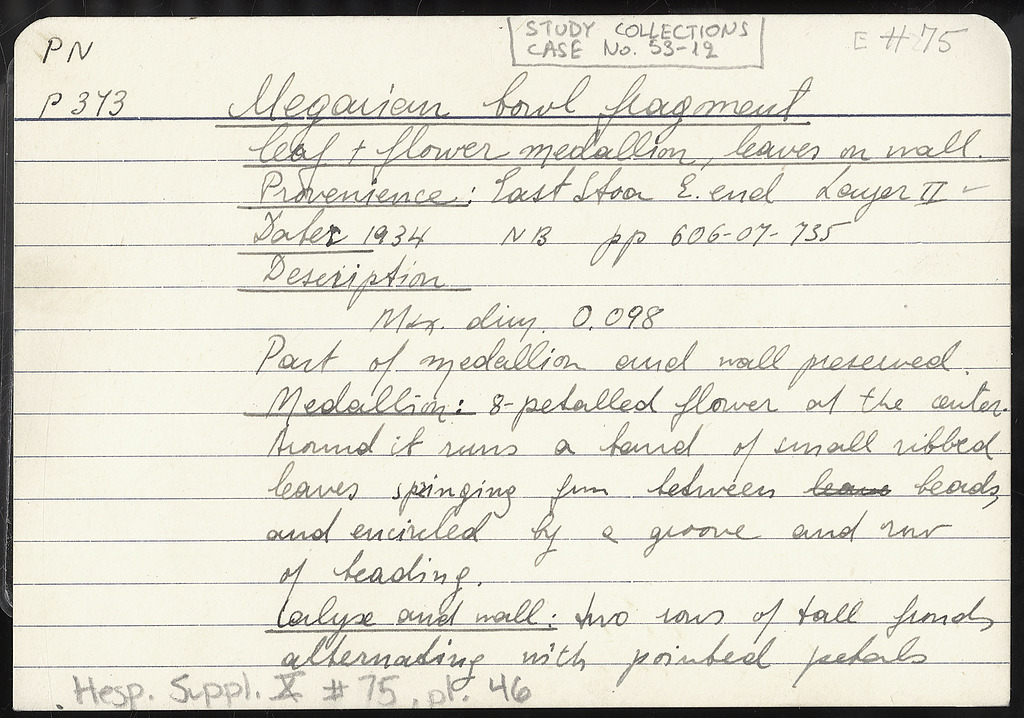 PN
STUDY COLLECTIONS
CASE No. 53-12
E #75
P 373 Megarian bowl fragment
leaf + flower medallion, leaves on wall.
Provenience: East Stoa E. end Layer II
Date: 1934 NB pp 606-07-735
Description
Max. dim. 0.098
Part of medallion and wall preserved.
Medallion: 8-petalled flower at the center.
Around it runs a band of small ribbed
leaves springing from between leave beads,
and encircled by a groove and row
of beading.
Calyx and wall: two rows of tall fronds
alternating with pointed petals
Hesp. Suppl. X #75, pl. 46